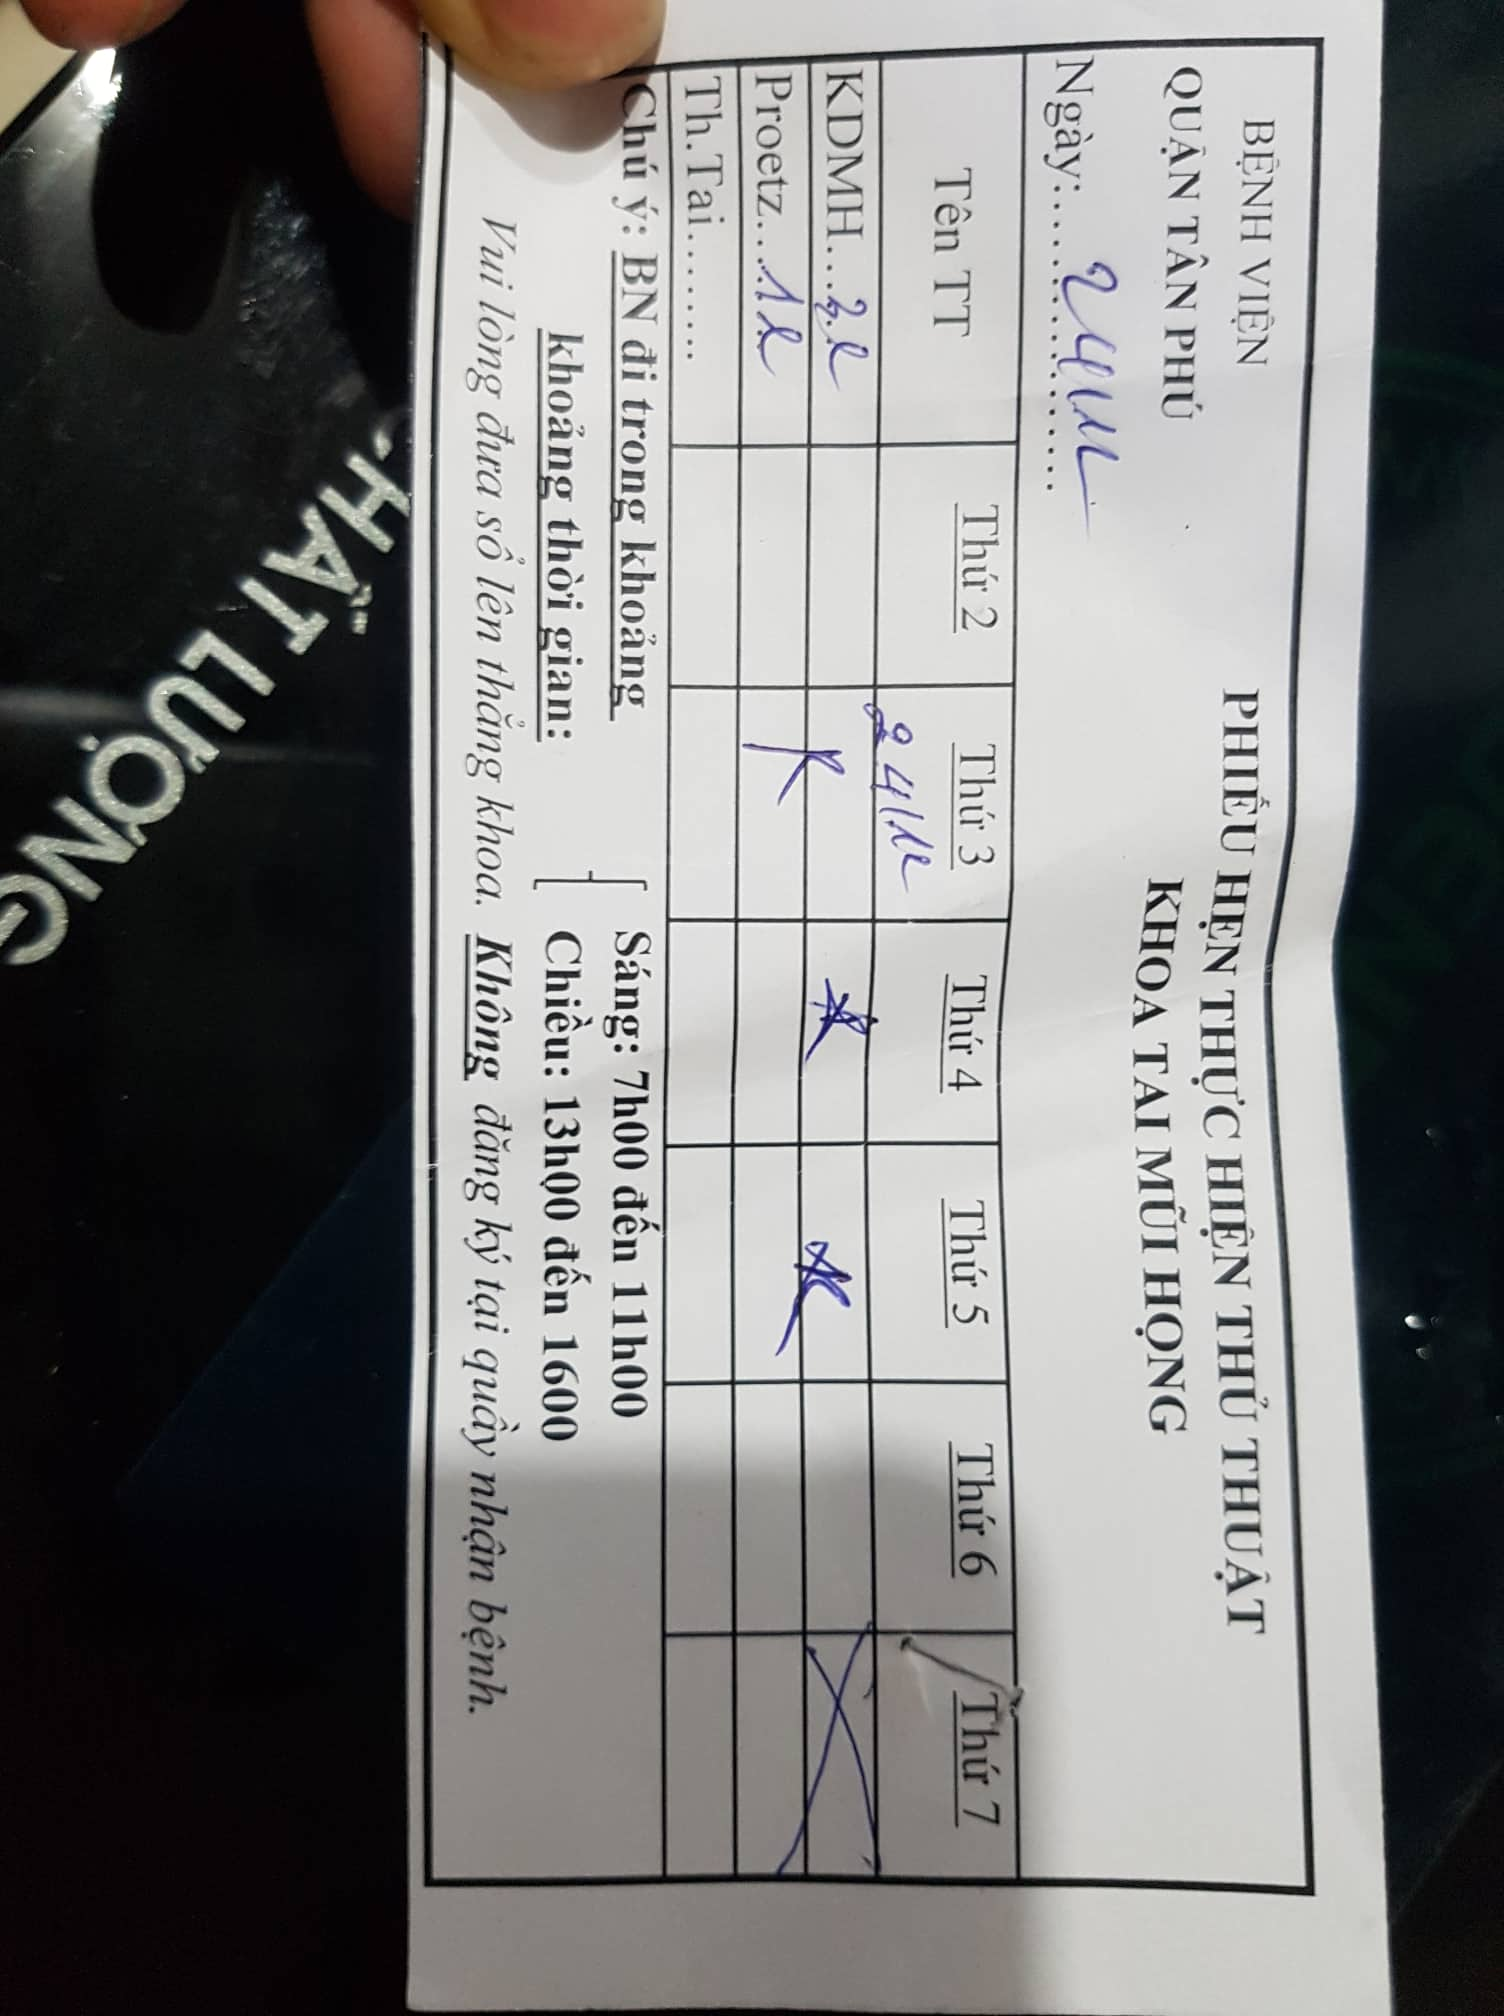 BỆNH VIỆN
QUẬN TÂN PHÚ
PHIẾU HẸN THỰC HIỆN THỦ THUẬT
KHOA TAI MŨI HỌNG
Ngày:....................
Tên TT Thứ 2 Thứ 3 Thứ 4 Thứ 5 Thứ 6 Thứ 7
KDMH...
Proetz...1l
Th.Tai........
Chú ý: BN đi trong khoảng
khoảng thời gian:
Sáng: 7h00 đến 11h00
Chiều: 13h00 đến 1600
Vui lòng đưa sổ lên thẳng khoa. Không đăng ký tại quầy nhận bệnh.
CHẤT LƯỢNG